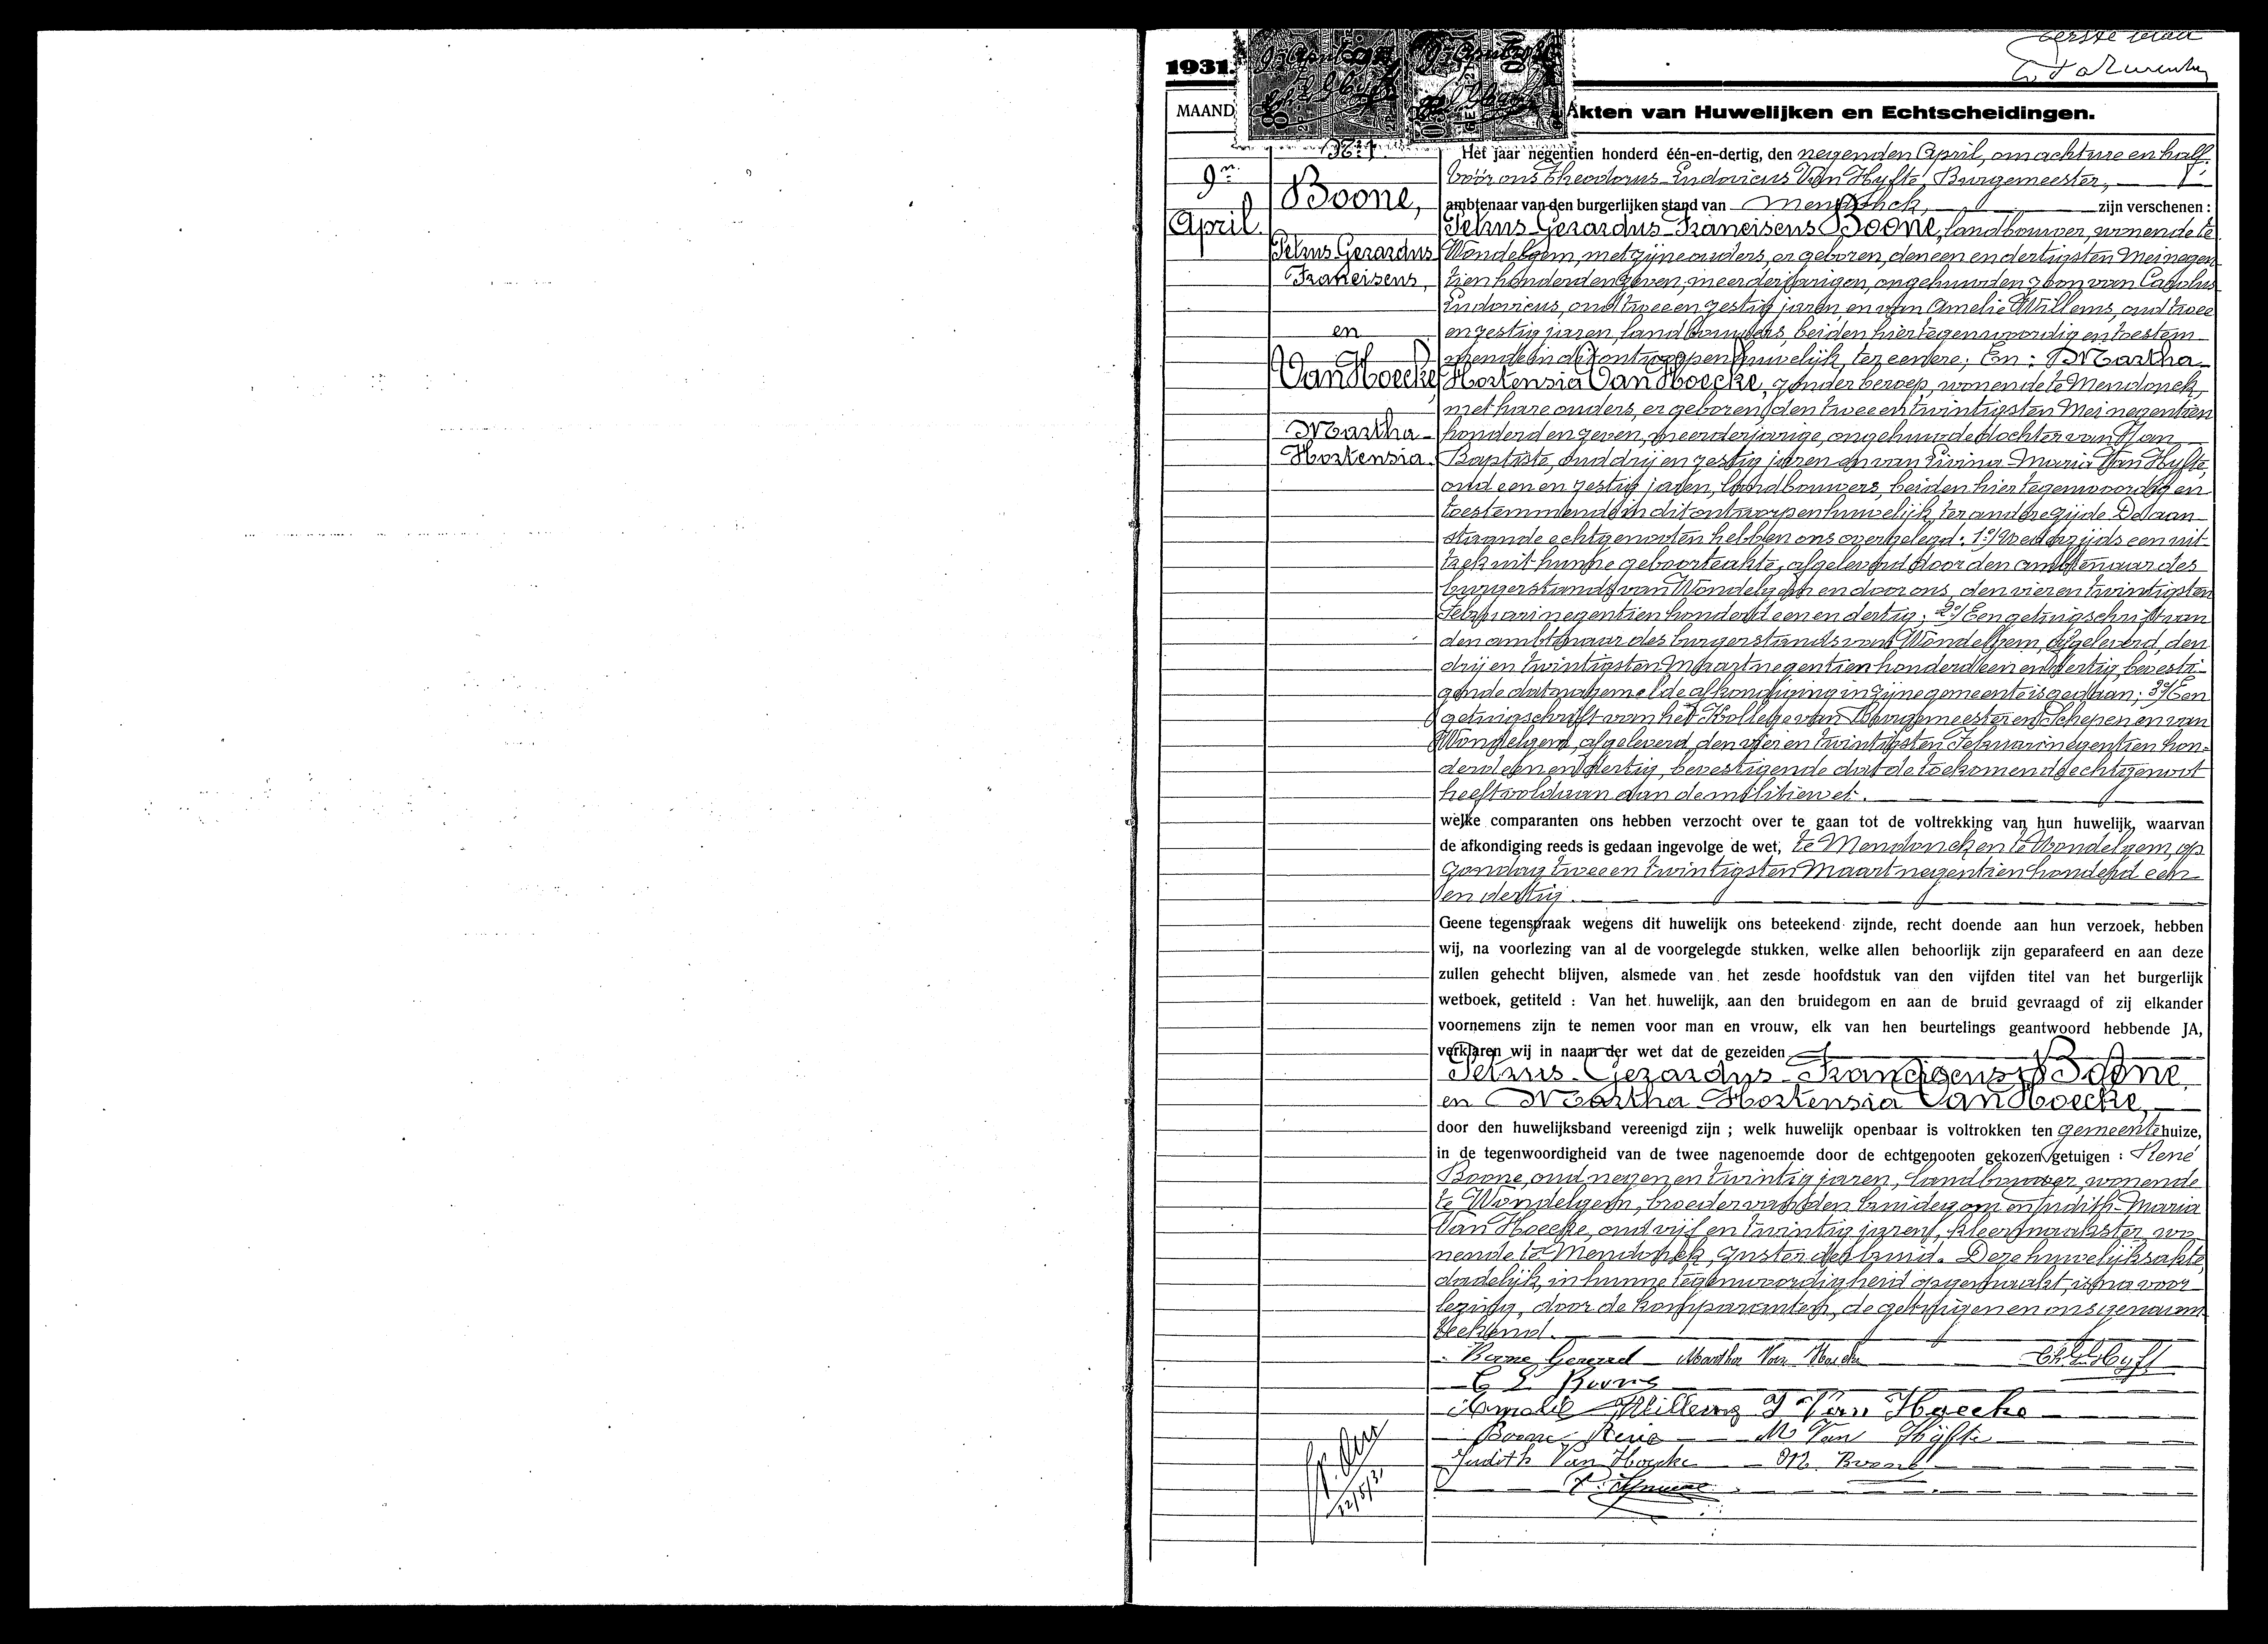 eerste blad
1931.
MAAND
Akten van Huwelijken en Echtscheidingen.
9n
April
N° 1.
Boone,
Petrus Gerardus
Franciscus,
en
Van Hoecke,
Martha
Hortensia.
Het jaar negentien honderd één-en-dertig, den negenden April, om acht ure en half
voor ons Theodorus Ludovicus Van Hyfte, Burgemeester,
ambtenaar van den burgerlijken stand van Mendonck, zijn verschenen :
Petrus Gerardus Franciscus Boone, landbouwer, wonende te
Wondelgem, met zijne ouders, er geboren, den een en dertigsten Mei negen
tien honderd en zeven, meerderjarigen, ongehuwden zoon van Carolus
Ludovicus, oud twee en zestig jaren, en van Amelie Willems, oud twee
en zestig jaren, landbouwers, beiden hier tegenwoordig en toestem
mende in dit ontworpen huwelijk, ter eenere; En : Martha
Hortensia Van Hoecke, zonder beroep, wonende te Mendonck,
met hare ouders, er geboren, den twee en twintigsten Mei negentien
honderd en zeven, meerderjarige, ongehuwde dochter van Jan
Baptiste, oud drij en zestig jaren en van Livina Maria Van Hyfte,
oud een en zestig jaren, landbouwers, beiden hier tegenwoordig en
toestemmende in dit ontworpen huwelijk ter andere zijde De aan
staande echtgenooten hebben ons overgelegd : 1°/ Weerzijds een uit
trek uit hunne geboorteakte, afgeleverd door den ambtenaar des
burgerstands van Wondelgem en door ons, den vier en twintigsten
Februari negentien honderd een en dertig; 2°/ Een getuigschrift van
den ambtenaar des burgerstands van Wondelgem, afgeleverd, den
drij en twintigsten Maart negentien honderd een en dertig, bevesti
gende dat nagemelde afkondiging in zijne gemeente is gedaan; 3°/ Een
getuigschrift van het Kollege van Burgemeester en Schepenen van
Wondelgem, afgeleverd, den vier en twintigsten Februari negentien hon-
derd een en dertig, bevestigende dat de toekomende echtgenoot
heeft voldaan aan de militiewet.
welke comparanten ons hebben verzocht over te gaan tot de voltrekking van hun huwelijk, waarvan
de afkondiging reeds is gedaan ingevolge de wet, te Mendonck en te Wondelgem, op
zondag twee en twintigsten Maart negentien honderd een
en dertig.
Geene tegenspraak wegens dit huwelijk ons beteekend zijnde, recht doende aan hun verzoek, hebben
wij, na voorlezing van al de voorgelegde stukken, welke allen behoorlijk zijn geparafeerd en aan deze
zullen gehecht blijven, alsmede van het zesde hoofdstuk van den vijfden titel van het burgerlijk
wetboek, getiteld : Van het huwelijk, aan den bruidegom en aan de bruid gevraagd of zij elkander
voornemens zijn te nemen voor man en vrouw, elk van hen beurtelings geantwoord hebbende JA,
verklaren wij in naam der wet dat de gezeiden
Petrus Gerardus Franciscus Boone
en Martha Hortensia Van Hoecke,
door den huwelijksband vereenigd zijn ; welk huwelijk openbaar is voltrokken ten gemeentehuize,
in de tegenwoordigheid van de twee nagenoemde door de echtgenooten gekozen getuigen : René
Boone, oud negen en twintig jaren, landbouwer, wonende
te Wondelgem, broeder van den bruidegom en Judith Maria
Van Hoecke, oud vijf en twintig jaren, kleermaakster, wo
nende te Mendonck, zuster der bruid. Deze huwelijksakte,
dadelijk in hunne tegenwoordigheid opgemaakt, is na voor
lezing, door de komparanten, de getuigen en ons genaam
teekend.
Boone Gerard Martha Van Hoecke Th. L. V. Hyft
C L Boone
Amelie Willems J Van Hoecke
Boone René M Van Hyfte
Judith Van Hoecke M. Boone
12/5/31